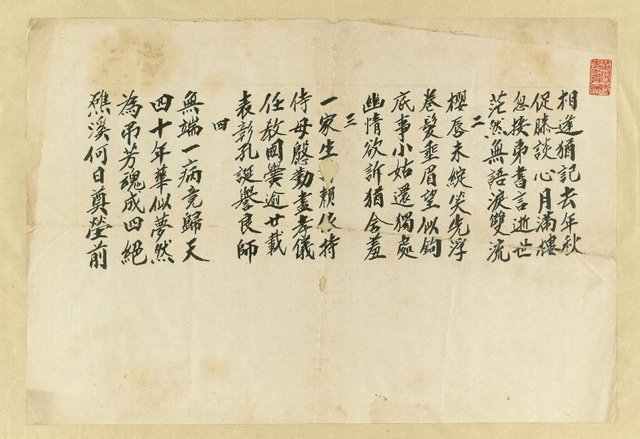 相逢猶記去年秋
促膝談心月滿樓
忽接弟書言逝世
茫然無語淚雙流
二
櫻唇未綻笑先浮
卷髮垂眉望似鉤
底事小姑還獨處
幽情欲訴猶含羞
三
一家生 賴依持
侍母慇勤盡孝儀
任教岡 逾廿載
表彰孔誕譽良師
四
無端一病竟歸天
四十年華似夢然
為弔芳魂成四絕
礁溪何日奠瑩前